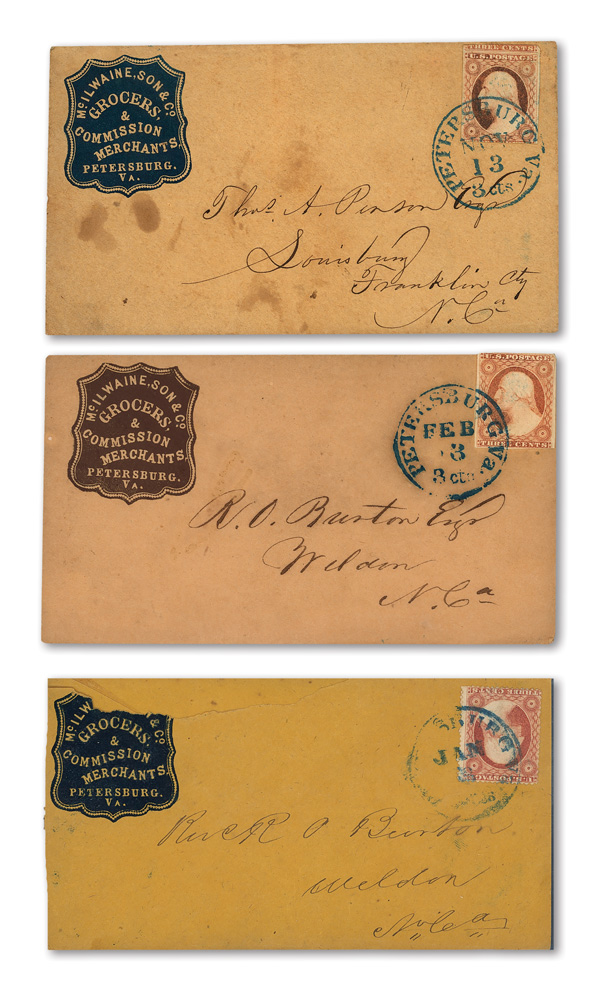 McILWAINE, SON & Co
GROCERS
&
COMMISSION
MERCHANTS,
PETERSBURG.
VA.
THREE CENTS
U.S. POSTAGE
PETERSBURG Va.
NOV
13
3 cts
Thos. A. Person Esqr
Louisburg
Franklin Cty
N. Ca
McILWAINE, SON & Co
GROCERS
&
COMMISSION
MERCHANTS,
PETERSBURG.
VA.
U.S. POSTAGE
THREE CENTS
PETERSBURG Va.
FEB
3
3 cts
R. O. Burton Esqr
Weldon
N. Ca
McILW & Co
GROCERS
&
COMMISSION
MERCHANTS,
PETERSBURG.
VA.
THREE CENTS
U.S. POSTAGE
SBURG
JAN
Rev R O Burton
Weldon
No Ca